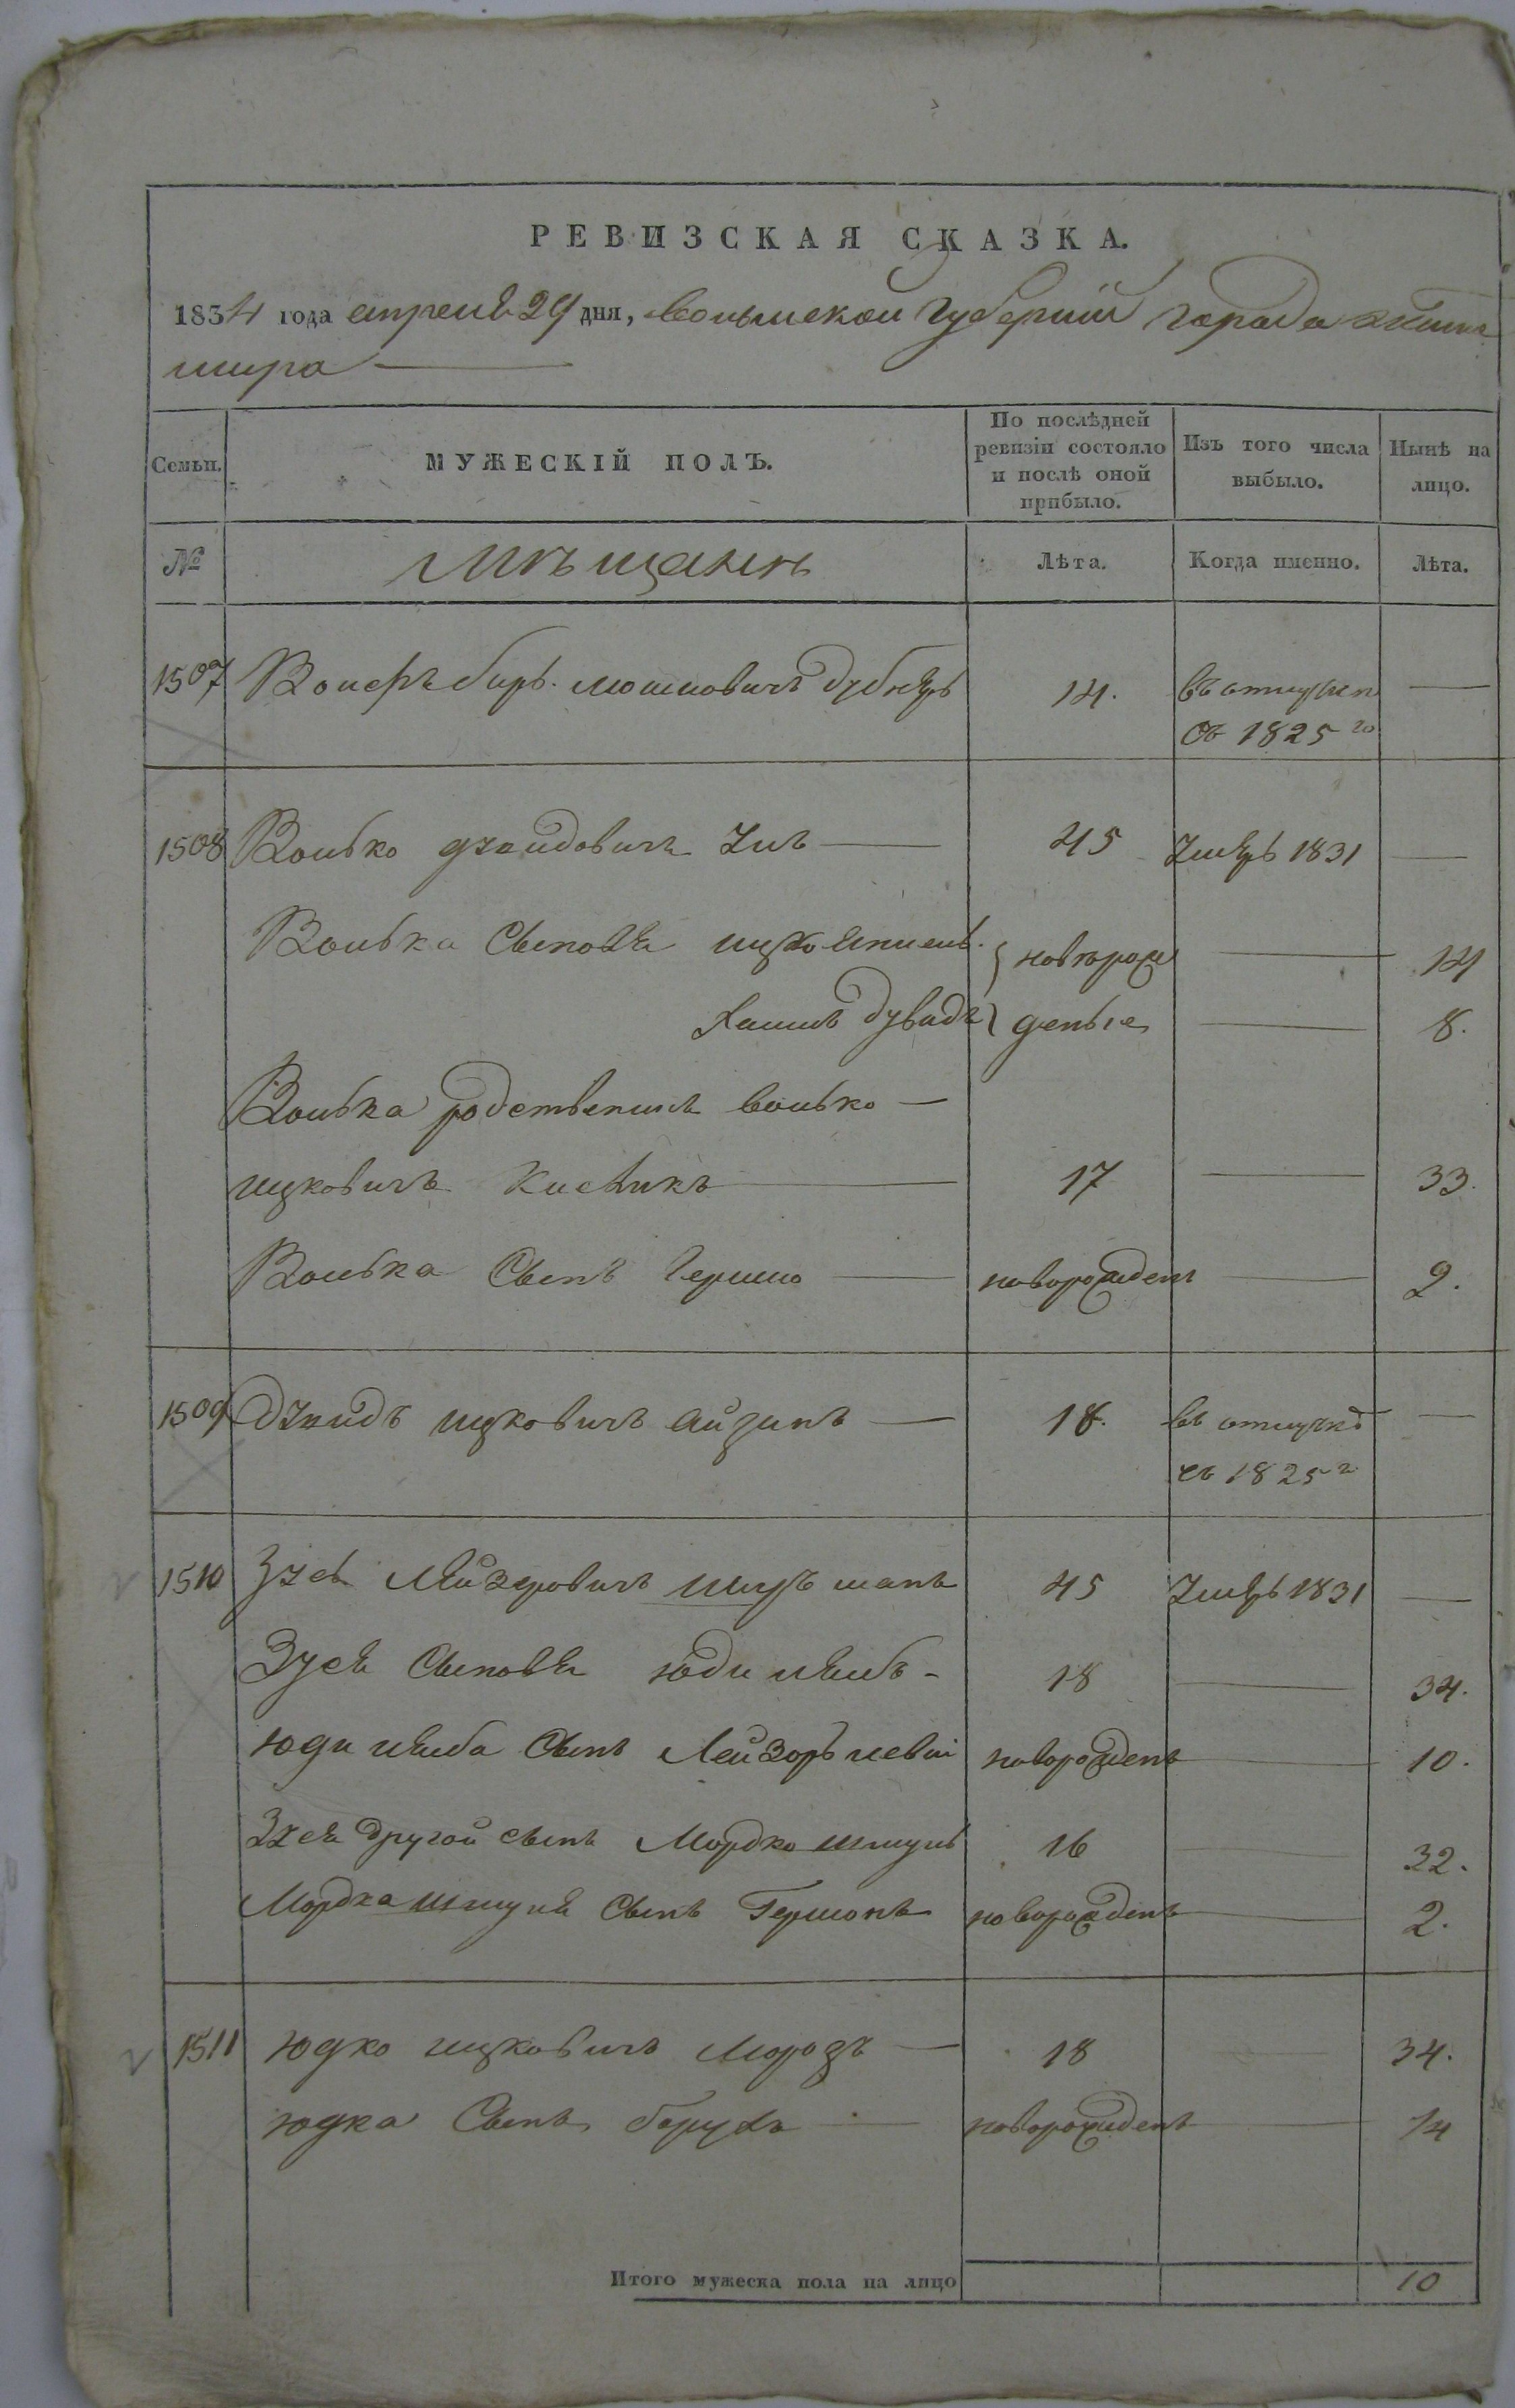 РЕВИЗСКАЯ СКАЗКА.
1834 года апреля 29 дня, волынской губернии города жито
мира
Семьи. МУЖЕСКІЙ ПОЛЪ. По послѣдней ревизіи состояло и послѣ оной прибыло. Изъ того числа выбыло. Нынѣ на лицо.
№ Мѣщанъ Лѣта. Когда именно. Лѣта.
1507 мошковичъ дубнеръ 14. въ отлучкѣ —
съ 1825 го
1508 Волько дувидовичъ — 45 умеръ 1831 —
Волька сыновья ицко { новорож — 14
Хаимъ дувидъ } деные — 8.
Волька родственикъ волько —
ицковичъ — 17 — 33.
Волька сынъ Гершко — новорожденъ — 2.
1509 дувидъ ицковичъ айзинъ — 18. въ отлучкѣ —
съ 1825 г
1510 Зусь лейзеровичъ шурманъ 45 умеръ 1831 —
Зуся сыновья юди лейбъ - 18 — 34.
юди лейба сынъ Лейзоръ левий новорожденъ — 10.
Зуся другой сынъ Мордко шмуль 16 — 32.
Мордка шмуля сынъ Гершонъ новорожденъ — 2.
1511 юдко ицковичъ морозъ — 18 — 34.
юдка сынъ борухъ — новорожденъ — 14
Итого мужеска пола на лицо 10